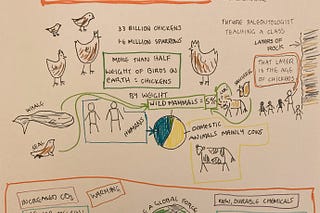 33 BILLION CHICKENS
1.6 MILLION SPARROWS
MORE THAN HALF
WEIGHT OF BIRDS IN
EARTH = CHICKENS
FUTURE PALEONTOLOGIST
TEACHING A CLASS
LAYERS OF
ROCK
THAT LAYER
IS THE AGE
OF CHICKENS
BY WEIGHT
WILD MAMMALS = 5%
WHALE
SEAL
HUMANS
DOMESTIC
ANIMALS MAINLY COWS
INCREASED CO2
WARMING
A GLOBAL FORCE
NEW, DURABLE CHEMICALS